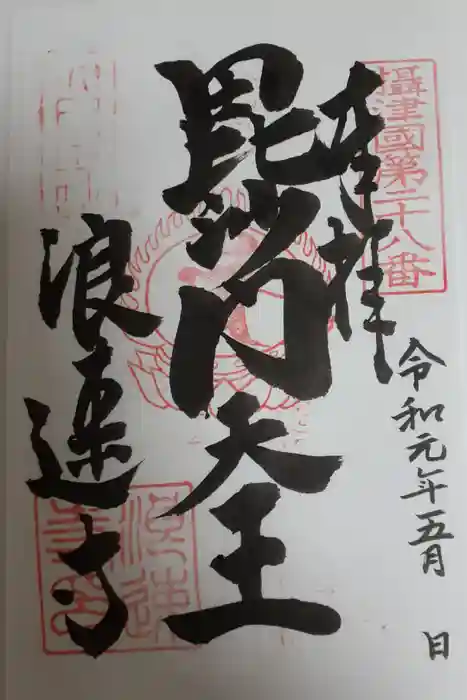 攝津國第二十八番
奉拝
令和元年五月　日
毘沙門天王
浪速寺